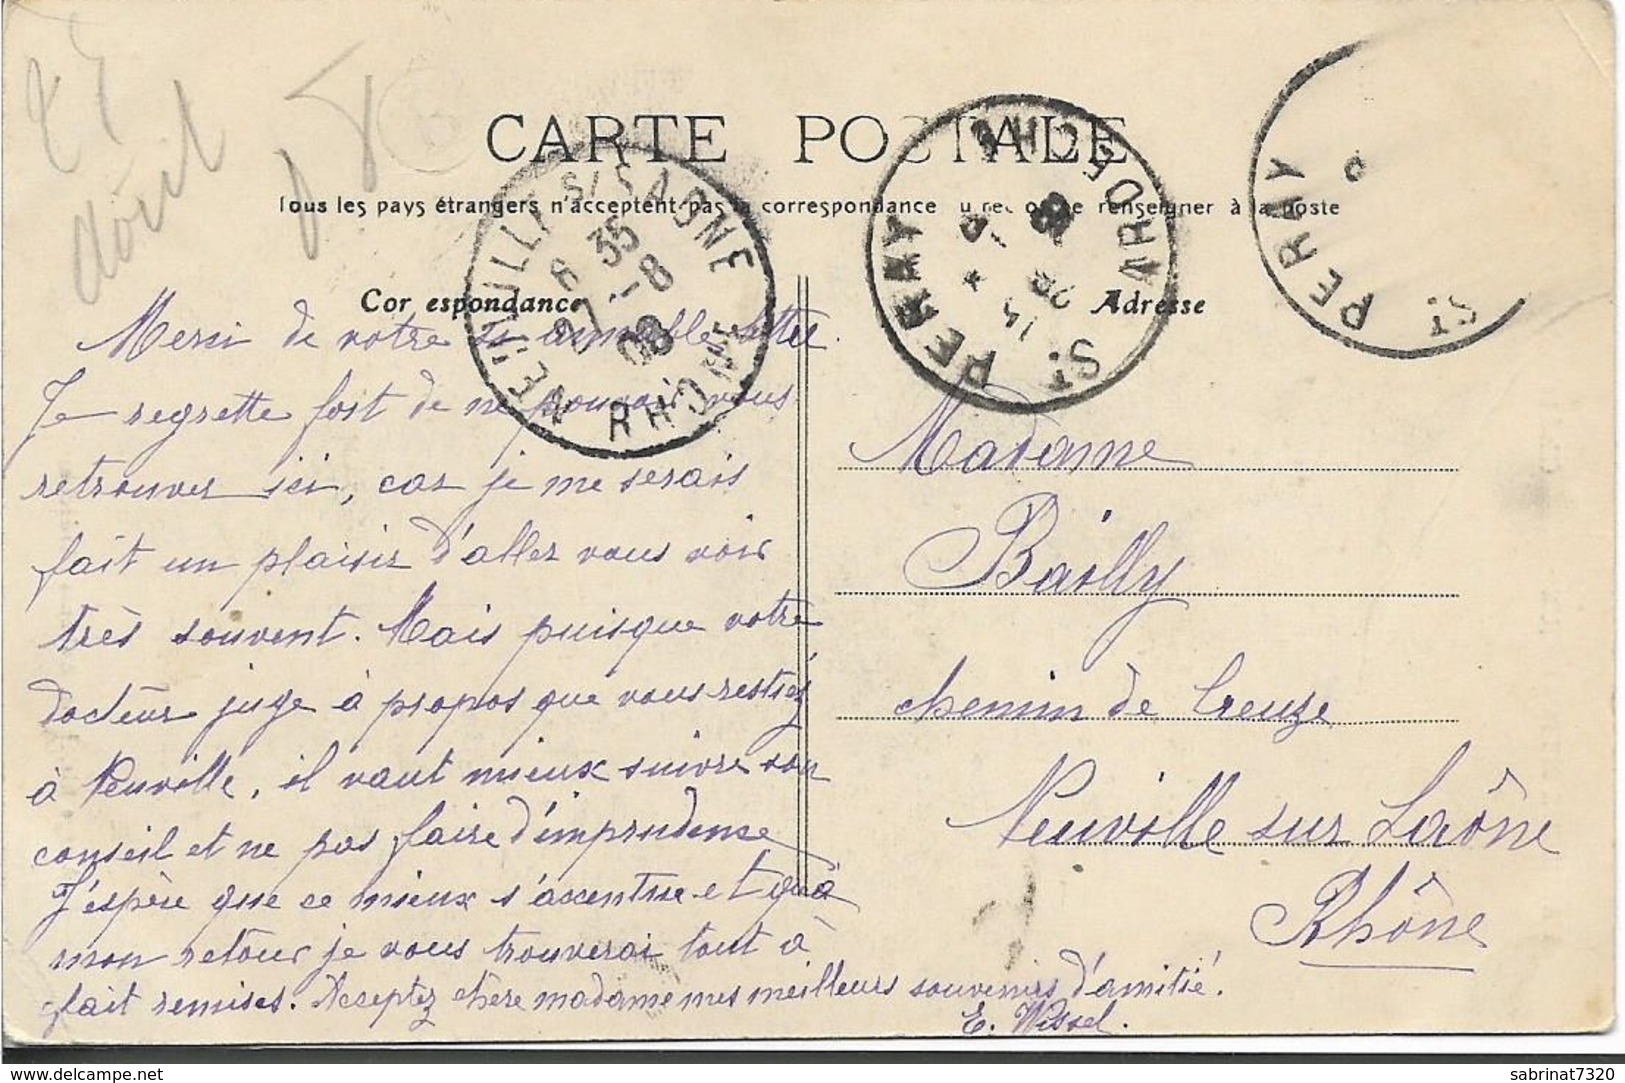 CARTE POSTALE
Tous les pays étrangers n'acceptent pas la correspondance au recto se renseigner à la poste
Correspondance
Adresse
NEUVILLE S/SAONE RHONE
6 35
27 -8
08
ST PERAY ARDECHE
ST PERAY
Merci de votre si aimable lettre.
Je regrette fort de ne pouvoir vous
retrouver ici, car je me serais
fait un plaisir d'aller vous voir
très souvent. Mais puisque votre
docteur juge à propos que vous restiez
à Neuville, il vaut mieux suivre son
conseil et ne pas faire d'imprudense
J'espère que ce mieux s'accentue et qu'à
mon retour je vous trouverai tout à
fait remises. Acceptez chère madame mes meilleurs souvenirs d'amitié.
E. Wissel.
Madame
Bailly
chemin de Creuze
Neuville sur Saône
Rhône
delcampe.net
sabrinat7320